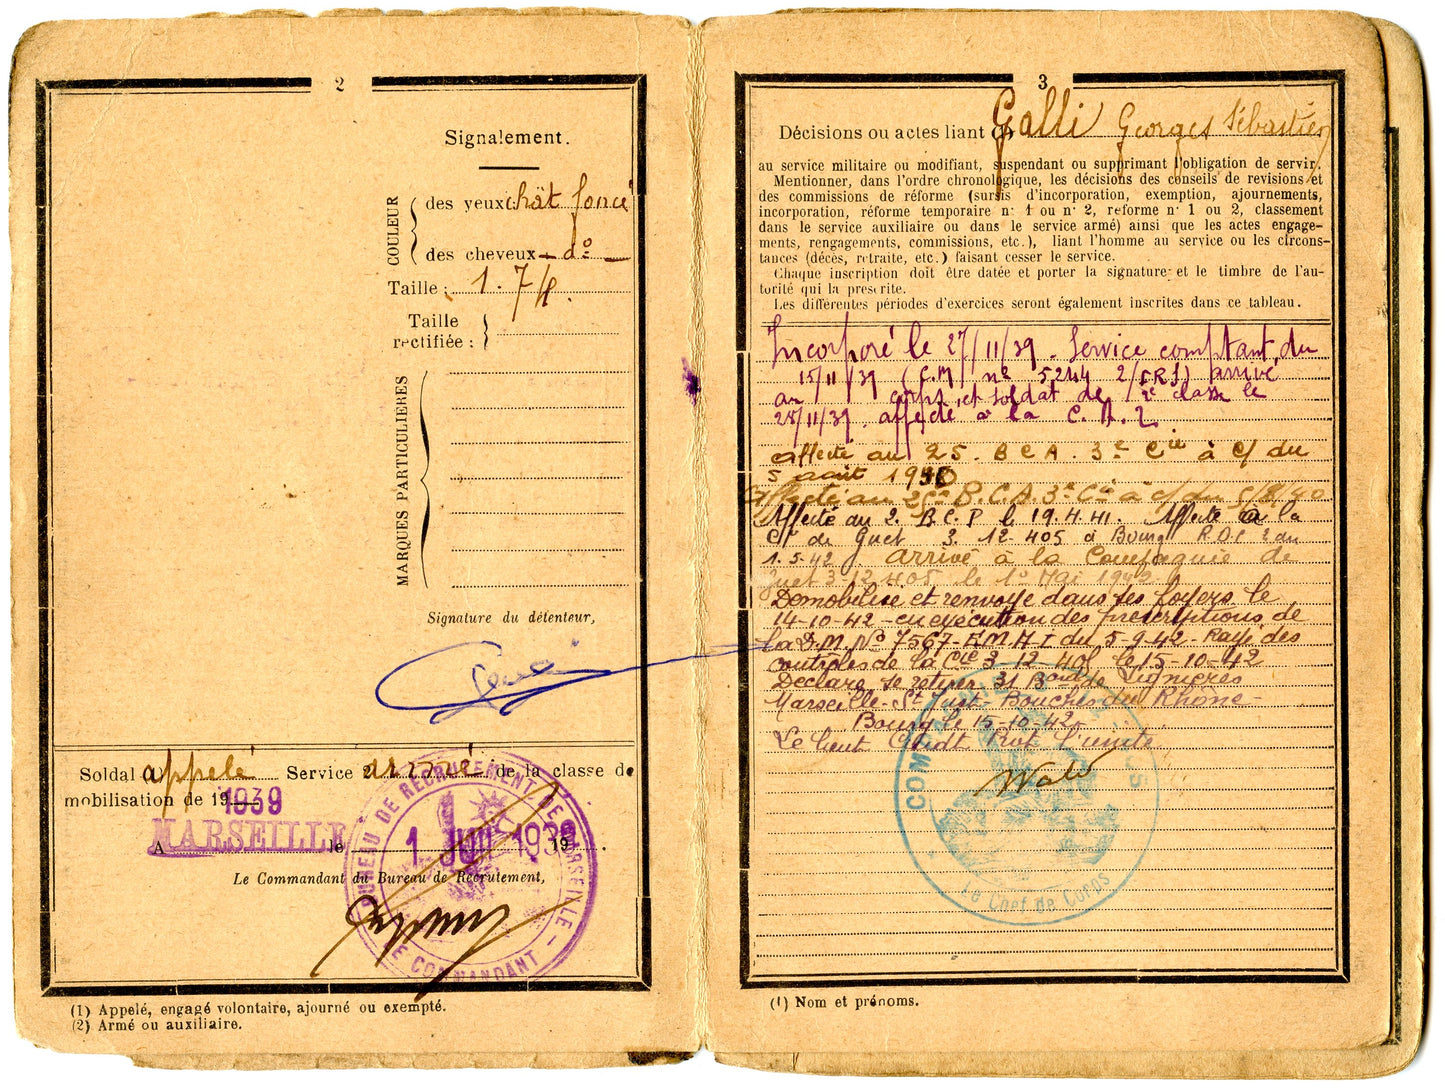 2
Signalement.
COULEUR
des yeux chât foncé
des cheveux – do –
Taille : 1.74.
Taille
rectifiée :
MARQUES PARTICULIERES
Signature du détenteur,
Soldat appelé Service armé de la classe de
mobilisation de 19 1939
A MARSEILLE le, 1 JUI 1939 19
Le Commandant du Bureau de Recrutement,
BUREAU DE RECRUTEMENT DE MARSEILLE - LE COMMANDANT
(1) Appelé, engagé volontaire, ajourné ou exempté.
(2) Armé ou auxiliaire.
3
Décisions ou actes liant (1) Galli Georges Sébastien
au service militaire ou modifiant, suspendant ou supprimant l'obligation de servir.
Mentionner, dans l'ordre chronologique, les décisions des conseils de revisions et
des commissions de réforme (sursis d'incorporation, exemption, ajournements,
incorporation, réforme temporaire n° 1 ou n° 2, reforme n° 1 ou 2, classement
dans le service auxiliaire ou dans le service armé) ainsi que les actes engage-
ments, rengagements, commissions, etc.), liant l'homme au service ou les circons-
tances (décès, retraite, etc.) faisant cesser le service.
Chaque inscription doit être datée et porter la signature et le timbre de l'au-
torité qui la prescrite.
Les différentes périodes d'exercices seront également inscrites dans ce tableau.
Incorporé le 27/11/39. Service comptant du
15/11/39 (C.M. n° 5244 2/CRS) arrivé
au corps et soldat de 2e classe le
28/11/39. affecté à la C.A.2
affecté au 25. BCA. 3e Cie à c/ du
5 août 1940
Affecté au 25e B.C.A. 3e Cie à c/ du 5/8/40
Affecté au 2. B.C.P le 19.4.41. Affecté à la
Cie de Guet 3. 12-405 à Bourg R.D.C 2 du
1.5.42. arrivé à la Compagnie de
Guet 3-12 405 le 1er Mai 1942
Démobilisé et renvoyé dans ses foyers le
14-10-42 - en exécution des prescriptions de
la D.M. N° 7567-EMA I du 5-9-42. Rayé des
contrôles de la Cie 3 12 405 le 15-10-42
Déclare se retirer 31 Bard de Lignières
Marseille - St Just - Bouches du Rhône -
Bourg le 15-10-42
Le Lieut Comdt l'unité
Le Chef de Corps
(1) Nom et prénoms.